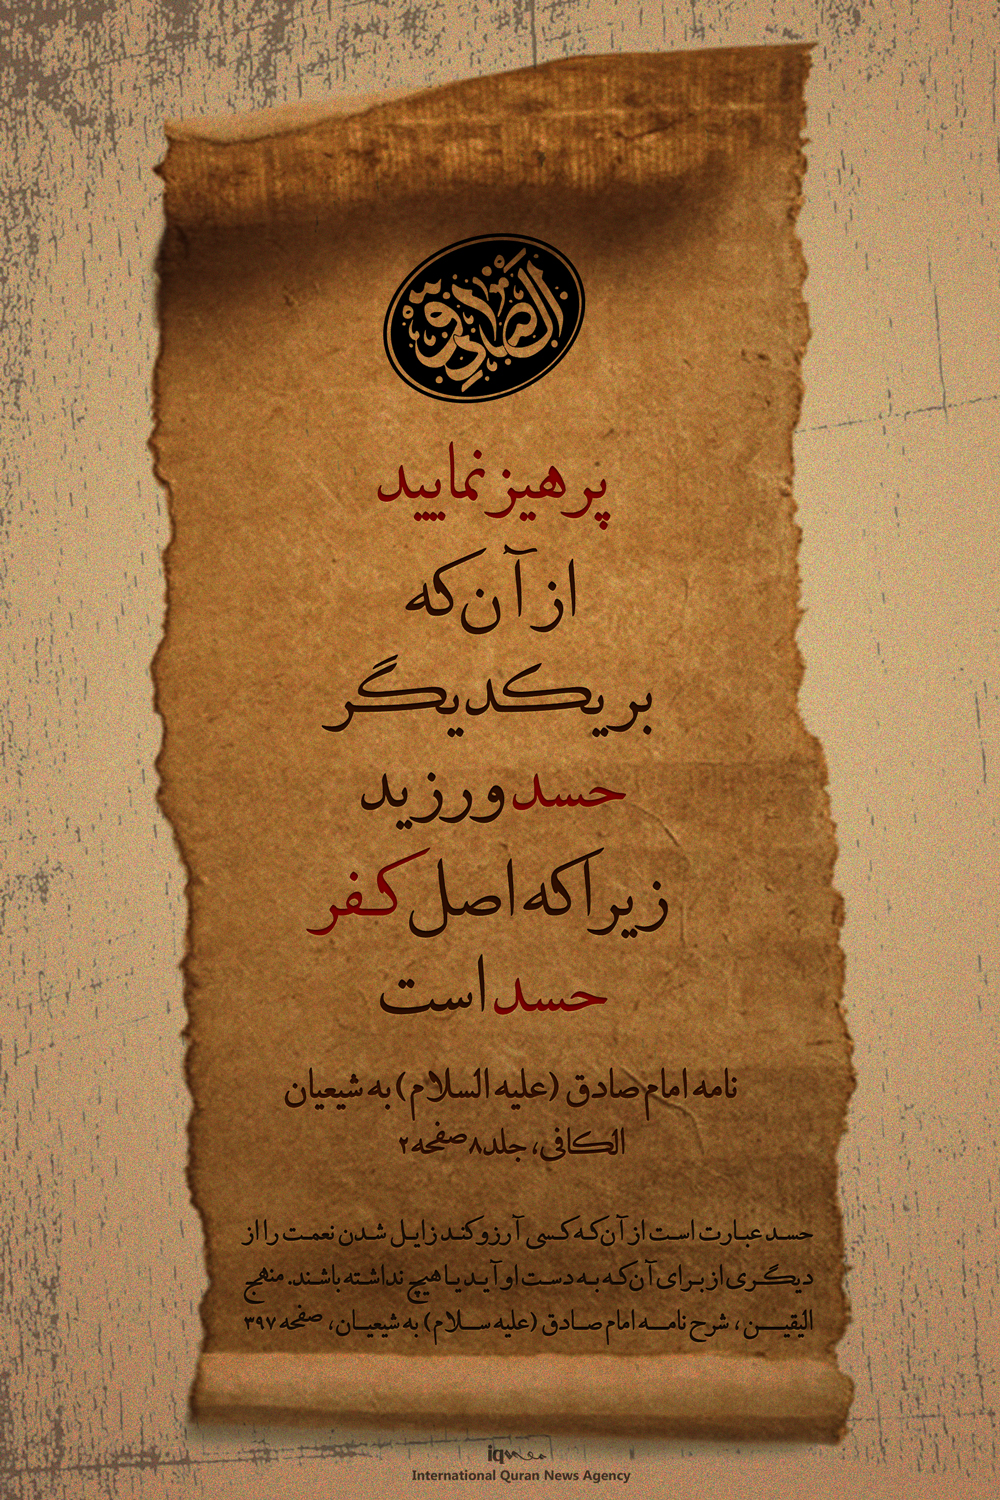 الصادق
پرهیز نمایید
از آن که
بر یکدیگر
حسد ورزید
زیرا که اصل کفر
حسد است
نامه امام صادق (علیه السلام) به شیعیان
الکافی، جلد ۸ صفحه ۲
حسد عبارت است از آن که کسی آرزو کند زایل شدن نعمت را از
دیگری از برای آن که به دست او آید یا هیچ نداشته باشند. منهج
الیقین، شرح نامه امام صادق (علیه سلام) به شیعیان، صفحه ۳۹۷
iqna
International Quran News Agency